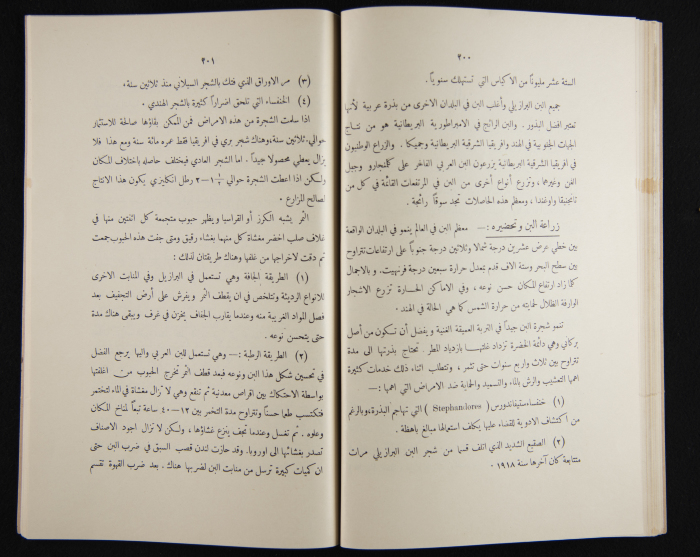 ٢٠٠
الستة عشر مليوناً من الاكياس التي تستهلك سنوياً.
جميع البن البرازيلي وأغلب البن في البلدان الاخرى من بذرة عربية لأنها
تعتبر افضل البذور. والبن الرائج في الامبراطورية البريطانية هو من نتاج
الجهات الجنوبية في الهند وافريقيا الشرقية البريطانية وجميكا. والزراع الوطنيون
في افريقيا الشرقية البريطانية يزرعون البن العربي الفاخر على كلمنجارو وجبل
الفن وغيرهما، وتزرع أنواع أخرى من البن في المرتفعات القائمة في كل من
تانجنيقا واوغندا، ومعظم هذه الحاصلات تجد سوقاً رائجة.
زراعة البن وتحضيره :— معظم البن في العالم ينمو في البلدان الواقعة
بين خطي عرض عشرين درجة شمالا وثلاثين درجة جنوباً على ارتفاعات تتراوح
بين سطح البحر وستة الاف قدم بمعدل حرارة سبعين درجة فرنهيت. وبالاجمال
كلما زاد ارتفاع المكان حسن نوعه، وفي الاماكن الحارة تزرع الاشجار
الوارفة الظلال لحمايته من حرارة الشمس كما هي الحالة في الهند.
تنمو شجرة البن جيداً في التربة العميقة الغنية ويفضل أن تكون من أصل
بركاني وهي دائمة الخضرة تزداد غلتها بازدياد المطر. تحتاج بذرتها الى مدة
تتراوح بين ثلاث واربع سنوات حتى تثمر، وتتطلب اثناء ذلك خدمات كثيرة
اهمها التعشيب والرش بالماء والتسميد والحماية ضد الامراض التي اهمها :—
(١) خنفساء ستيفاندورس (Stephandores) التي تهاجم البذرة، وبالرغم
من اكتشاف الادوية للقضاء عليها يكلف استعمالها مبالغ باهظة.
(٢) الصقيع الشديد الذي اتلف قسما من شجر البن البرازيلي مرات
متتابعة كان آخرها سنة ١٩١٨.
٢٠١
(٣) مرض الاوراق الذي فتك بالشجر السيلاني منذ ثلاثين سنة.
(٤) الخنفساء التي تلحق اضراراً كثيرة بالشجر الهندي.
اذا سلمت الشجرة من هذه الامراض فمن الممكن بقاؤها صالحة للاستثمار
حوالي ثلاثين سنة، وهناك شجر بري في افريقيا فقط عمره مائة سنة ومع هذا فلا
يزال يعطي محصولا جيداً. اما الشجر العادي فيختلف حاصله باختلاف المكان
ولكن اذا اعطت الشجرة حوالي ١½—٢ رطل انكليزي يكون هذا الانتاج
لصالح المزارع.
الثمر يشبه الكرز أو القراسيا ويظهر حبوب متجمعة كل اثنتين منها في
غلاف صلب اخضر مغشاة كل منهما بغشاء رقيق ومتى جفت هذه الحبوب جمعت
ثم دقت لاخراجها من غلفها وهناك طريقتان لذلك :
(١) الطريقة الجافة وهي تستعمل في البرازيل وفي المنابت الاخرى
للانواع الرديئة وتتلخص في ان يقطف الثمر ويفرش على أرض التجفيف بعد
فصل المواد الغريبة منه وعندما يقارب الجفاف يخزن في غرف ويبقى هناك مدة
حتى يتحسن نوعه.
(٢) الطريقة الرطبة :— وهي تستعمل للبن العربي واليها يرجع الفضل
في تحسين شكل هذا البن ونوعه فبعد قطف الثمر تخرج الحبوب من اغلفتها
بواسطة الاحتكاك بين اقراص معدنية ثم تنقع وهي لا تزال مغشاة في الماء لتختمر
فتكتسب طعما حسناً وتتراوح مدة التخمر بين ١٢—٤٠ ساعة تبعاً لمناخ المكان
وعلوه. ثم تغسل وعندما تجف ينزع غشاؤها، ولكن لا تزال اجود الاصناف
تصدر بغشائها الى اوروبا. وقد حازت لندن قصب السبق في ضرب البن حتى
ان كميات كبيرة ترسل من منابت البن لضربها هناك. بعد ضرب القهوة تقسم